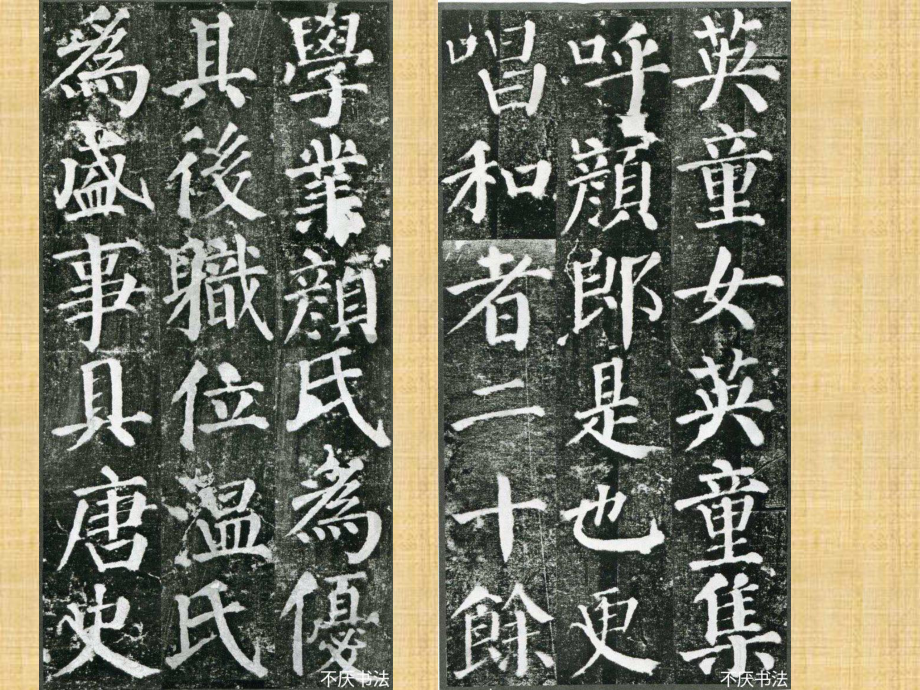 英童女英童集
呼顏郎是也更
唱和者二十餘
不厌书法
學業顏氏為優
其後職位温氏
為盛事具唐史
不厌书法